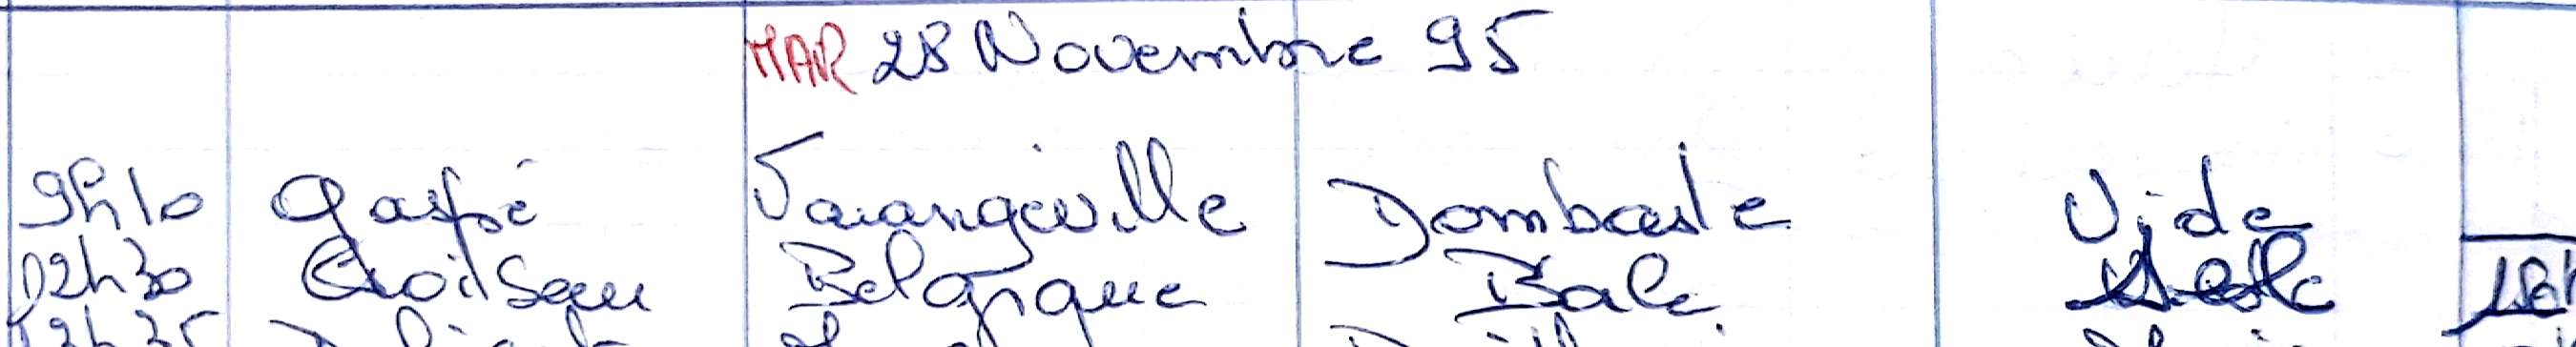 MAR 28 Novembre 95
9h10 Gaspé Varangéville Dombasle Vide
12h30 Croiseau Belgique Bale